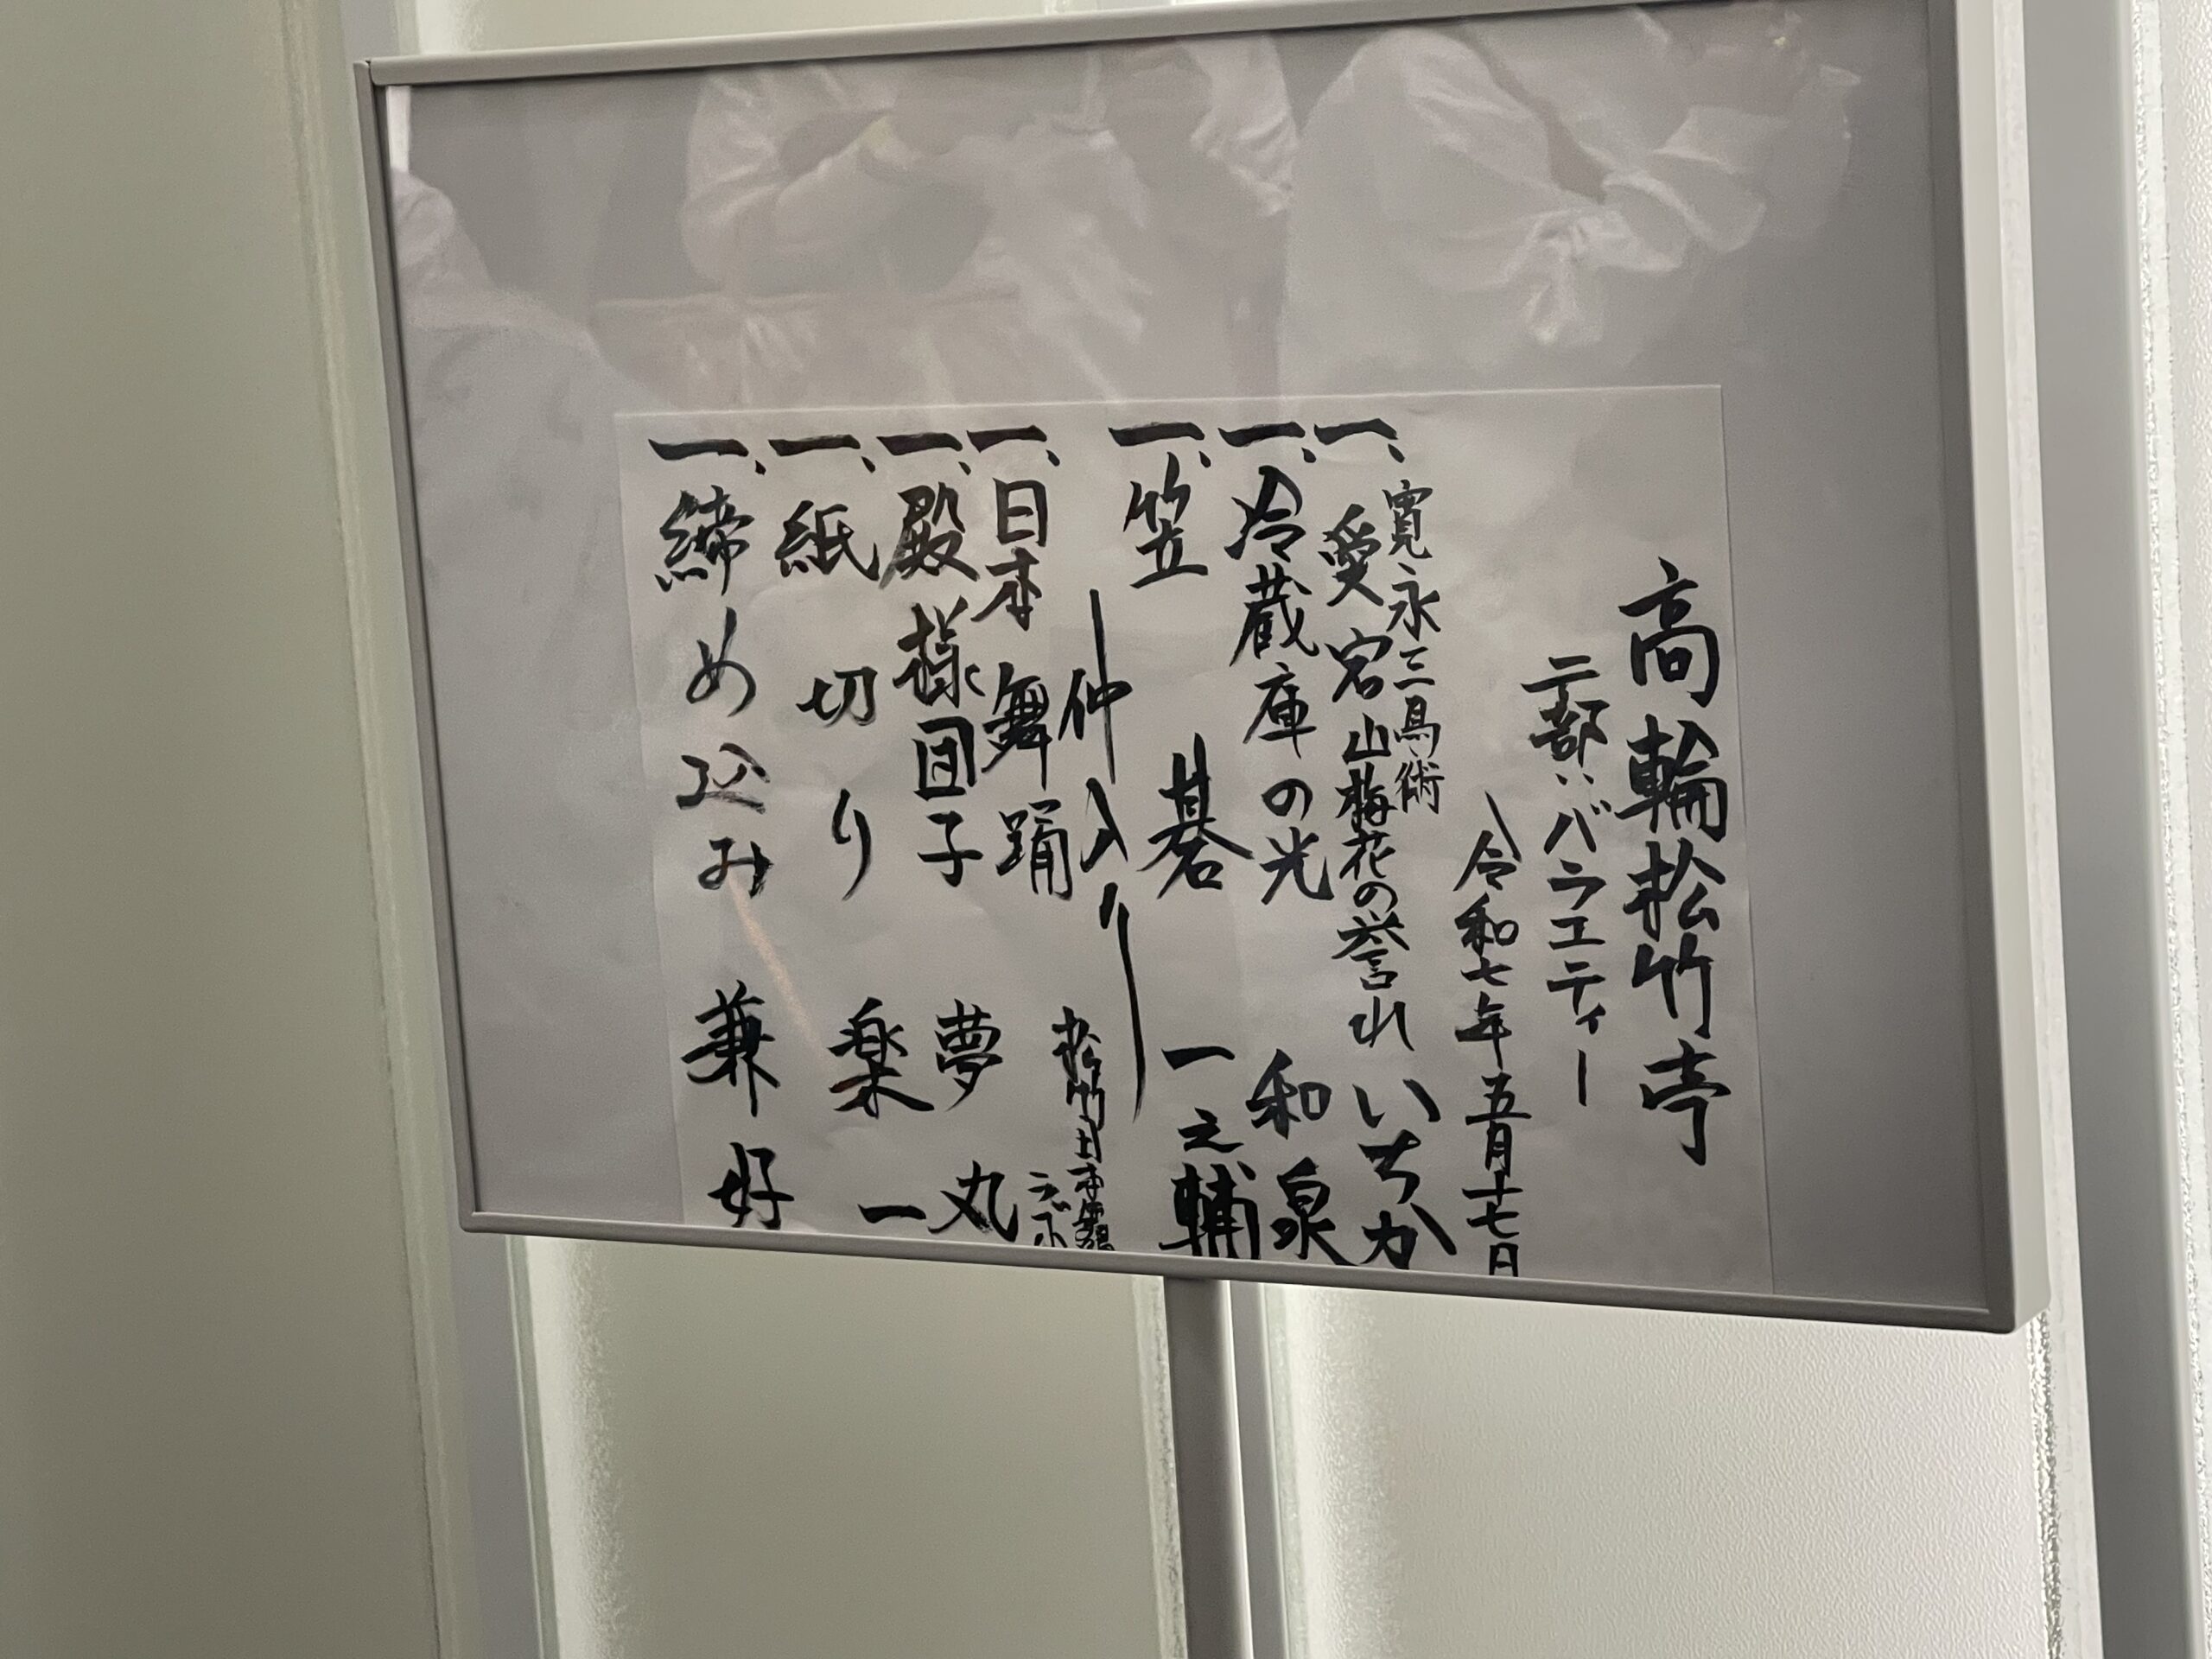 高輪松竹亭
二部:バラエティー
令和七年五月十七日
一、寛永三馬術
愛宕山梅花の誉れ いちか
一、冷蔵庫の光 和泉
一、笠碁 一之輔
仲入り
一、日本舞踊 松竹日本舞踊
一、殿様団子 夢丸
一、紙切り 楽一
一、締め込み 兼好